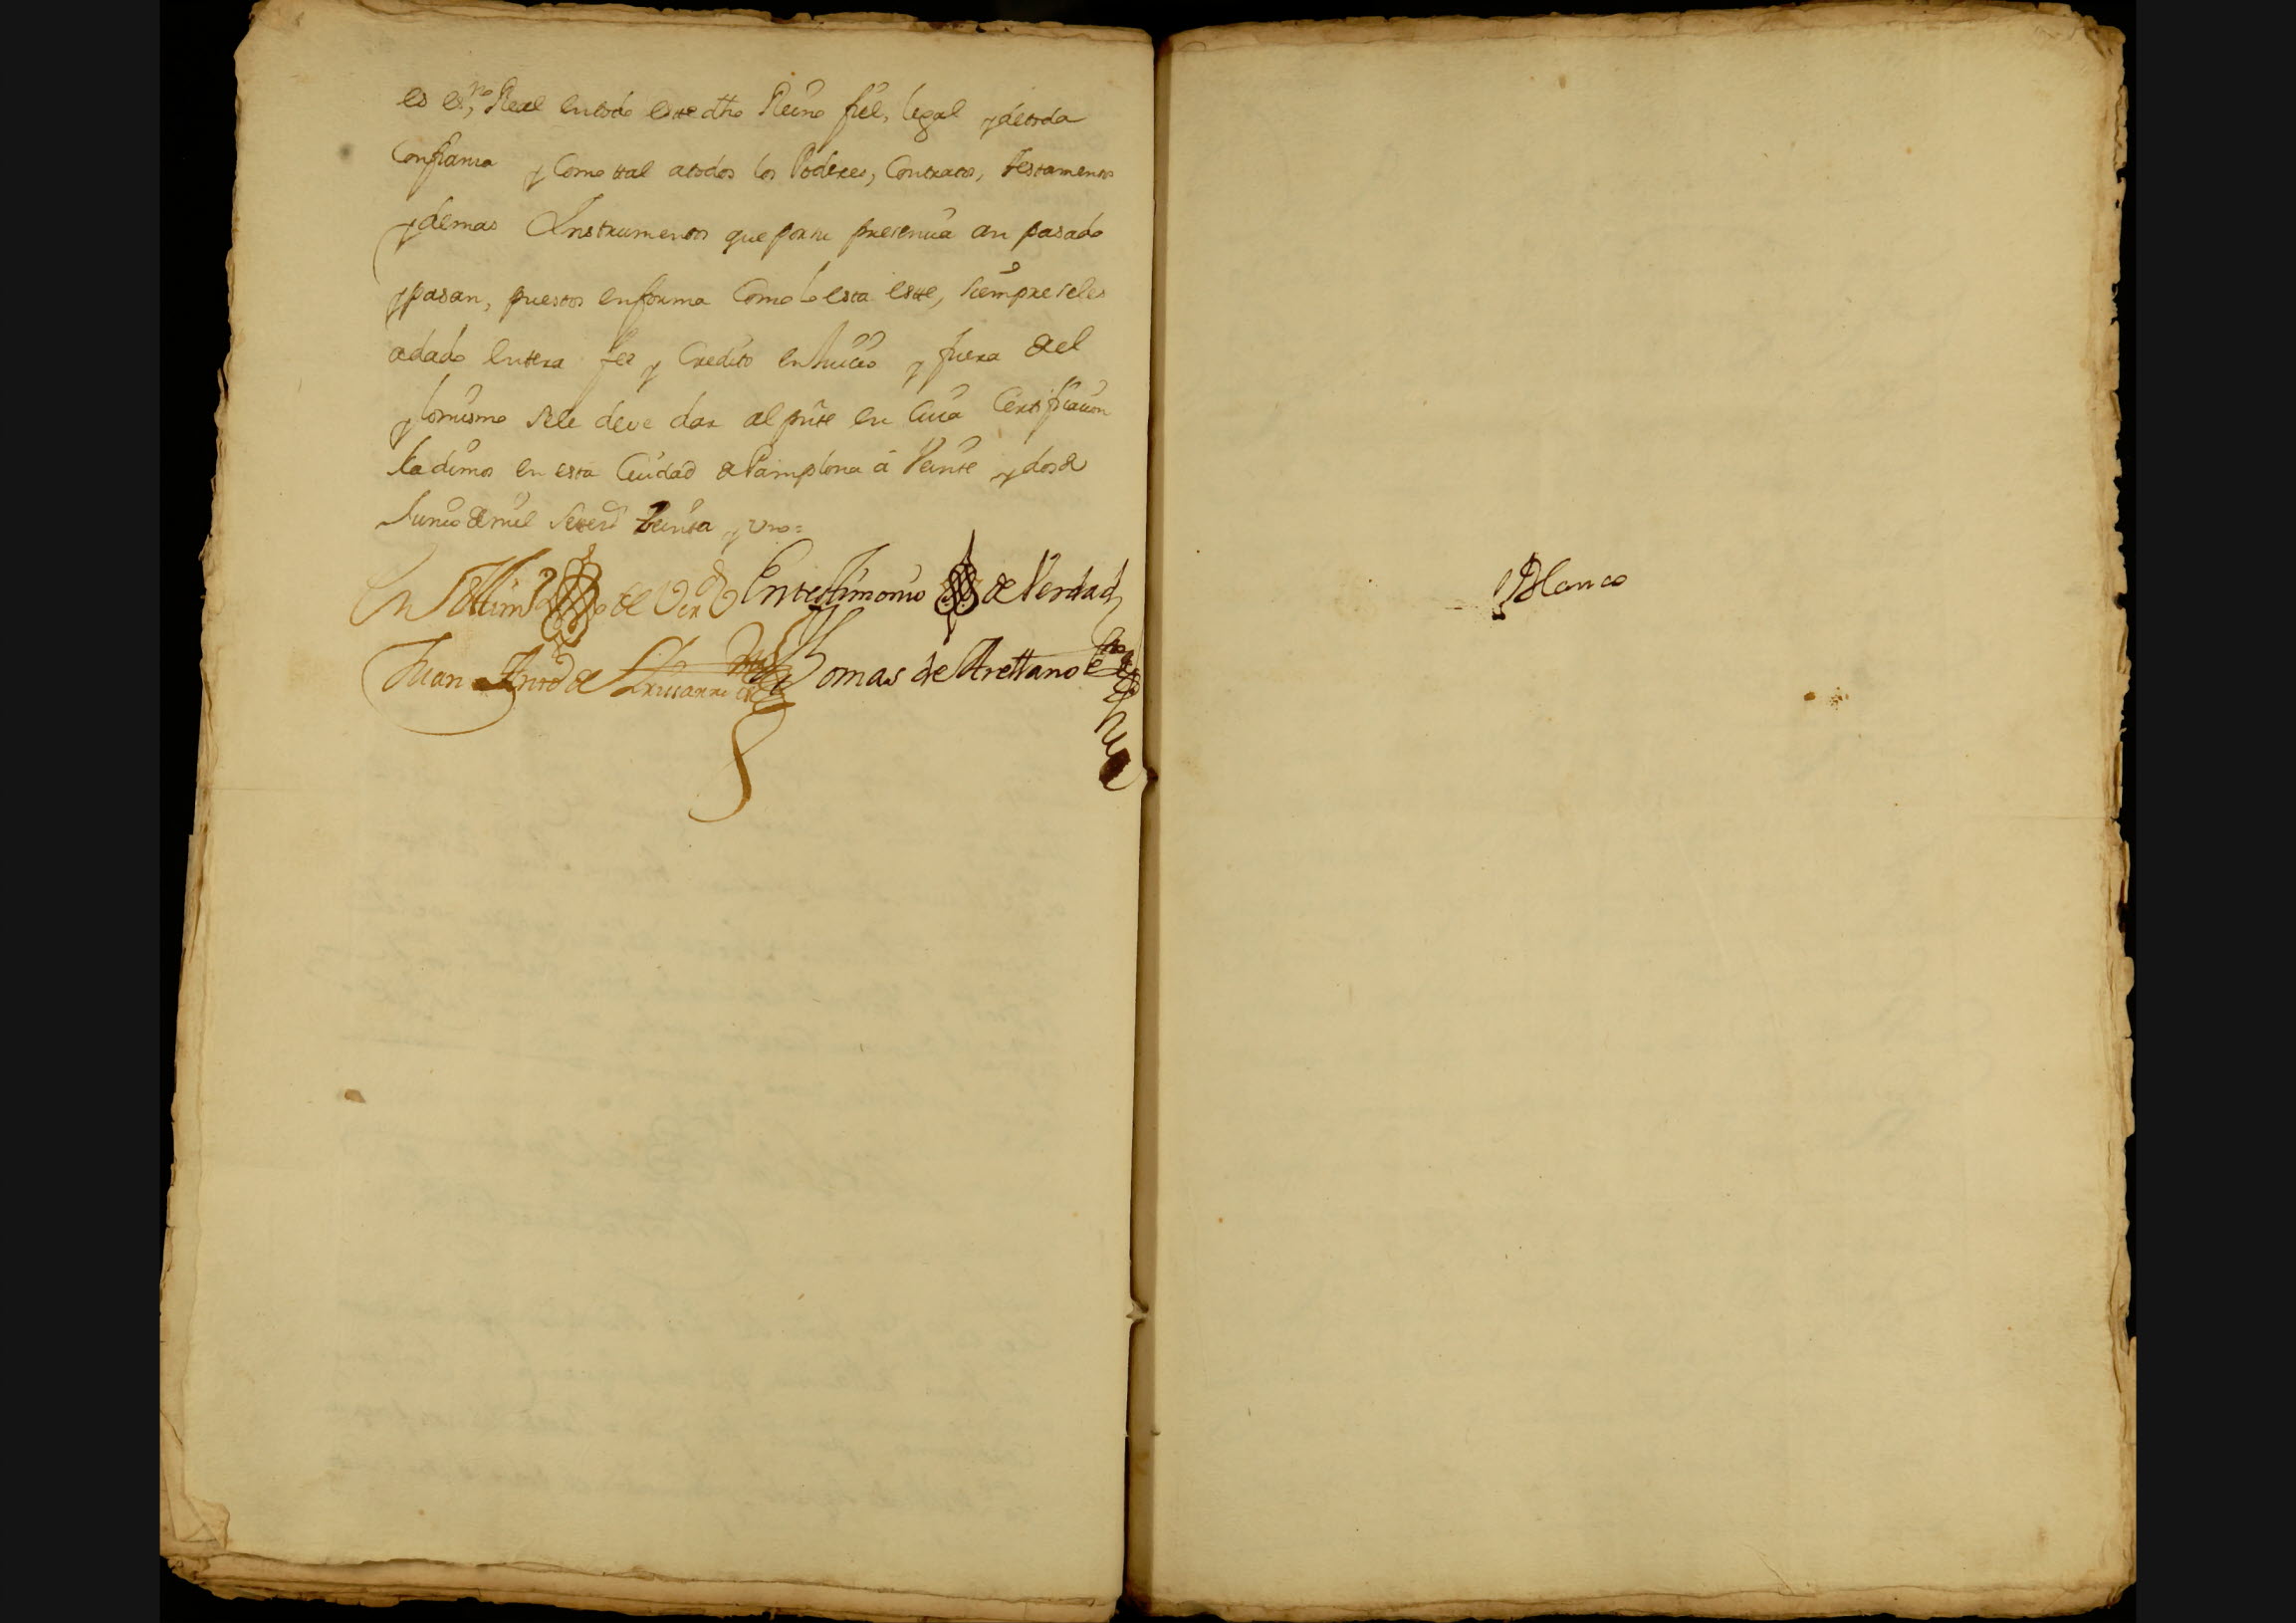 es es.no Real entodo estte dho Reino fiel, legal y detoda
Confianza y Como ttal atodos los Poderes, Contratos, testamentos
y demas Instrumentos que por su presencia an pasado
y pasan, puestos enforma Como lo esta estte, siempre seles
adado enttera fee y Credito enJuicio y fuera del
y lomismo sele deve dar al pnte en Cuia Certificacion
la dimos en esta Ciudad de Pamplona á Veinte y dos de
Junio de mil Settezos treinta y uno=
En testtimo de Verd Entestimonio de Verdad
Juan Antto de Thomas de Arellano
Blanco